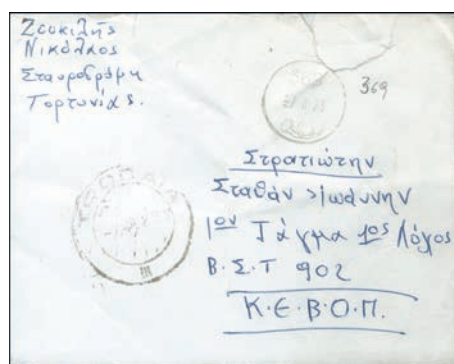 Νικόλαος
Σταυροδρόμι
Γορτυνίας.
369
Στρατιώτην
Σταθάν Ιωάννην
1ον Τάγμα 1ος Λόχος
Β.Σ.Τ 902
Κ.Ε.Β.Ο.Π.
III